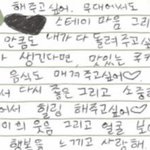 해주고 싶어. 무대에서도
스테이 마음 그리
만큼도 내가 다 돌려주고 싶
생긴다면, 맛있는 쿠키
음식도 매겨주고싶어♡
서 다시 좋은 그리고 소중
어서 힐링 해주고싶어♡
이의 웃음 그리고 얼굴 보
행복을 느끼고 사랑해.